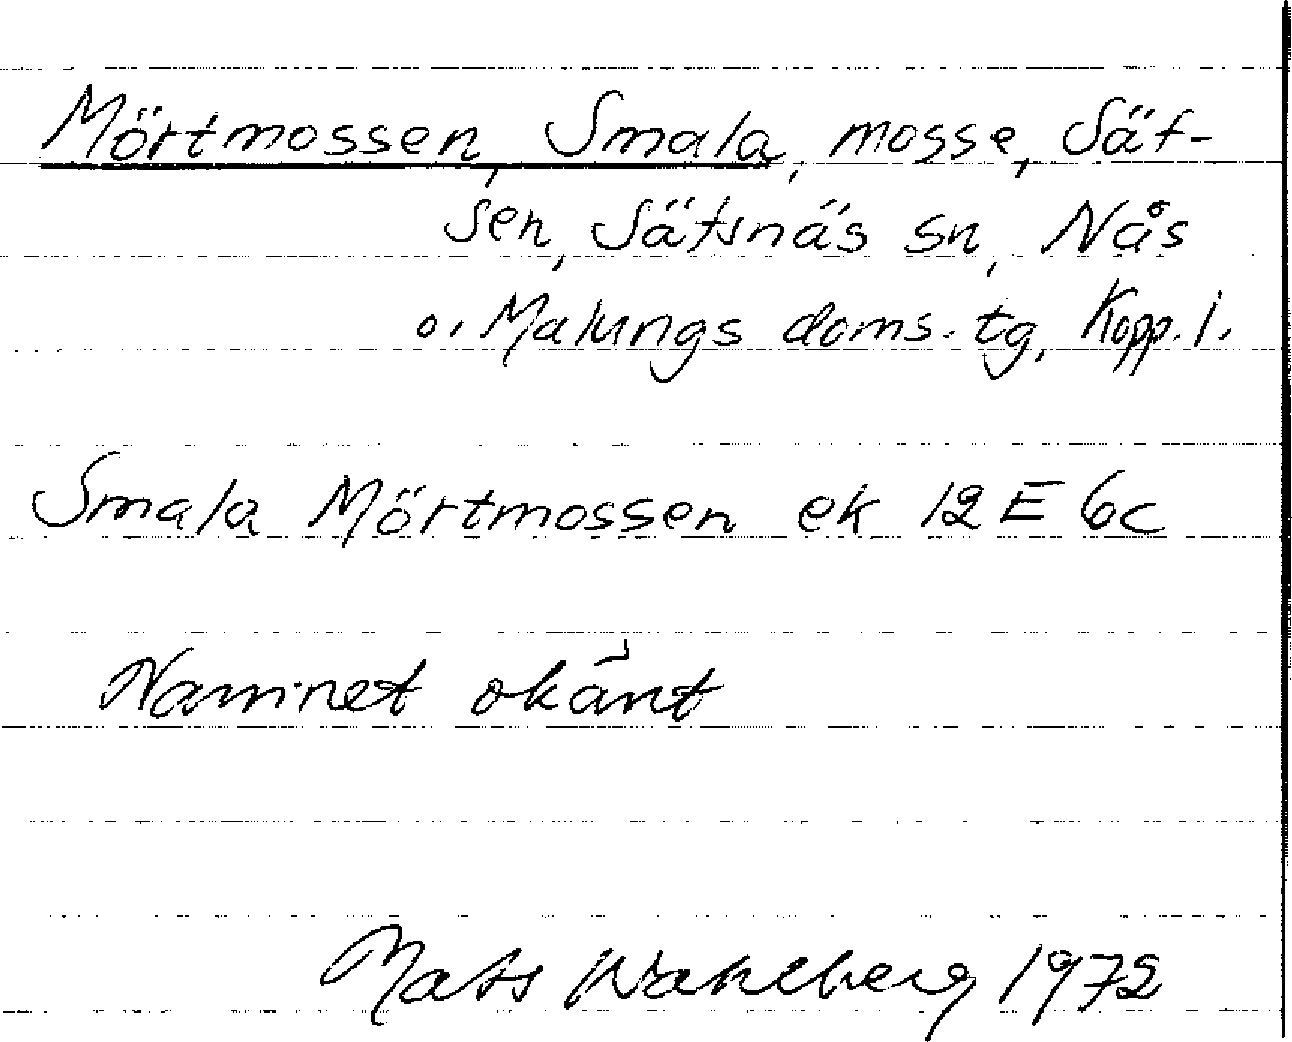 Mörtmossen, Smala, mosse, Sät-
sen, Sätsnäs sn, Nås
o. Malungs doms. tg, Kopp. l.
Smala Mörtmossen ek 12 E 6c
Namnet okänt
Mats Wahlberg 1972